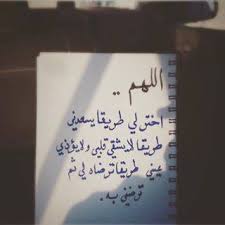 اللهم ..
اختر لي طريقا يسعدني
طريقا لا يشقي قلبي ولا يؤذي
عيني طريقا ترضاه لي ثم
ترضني به .